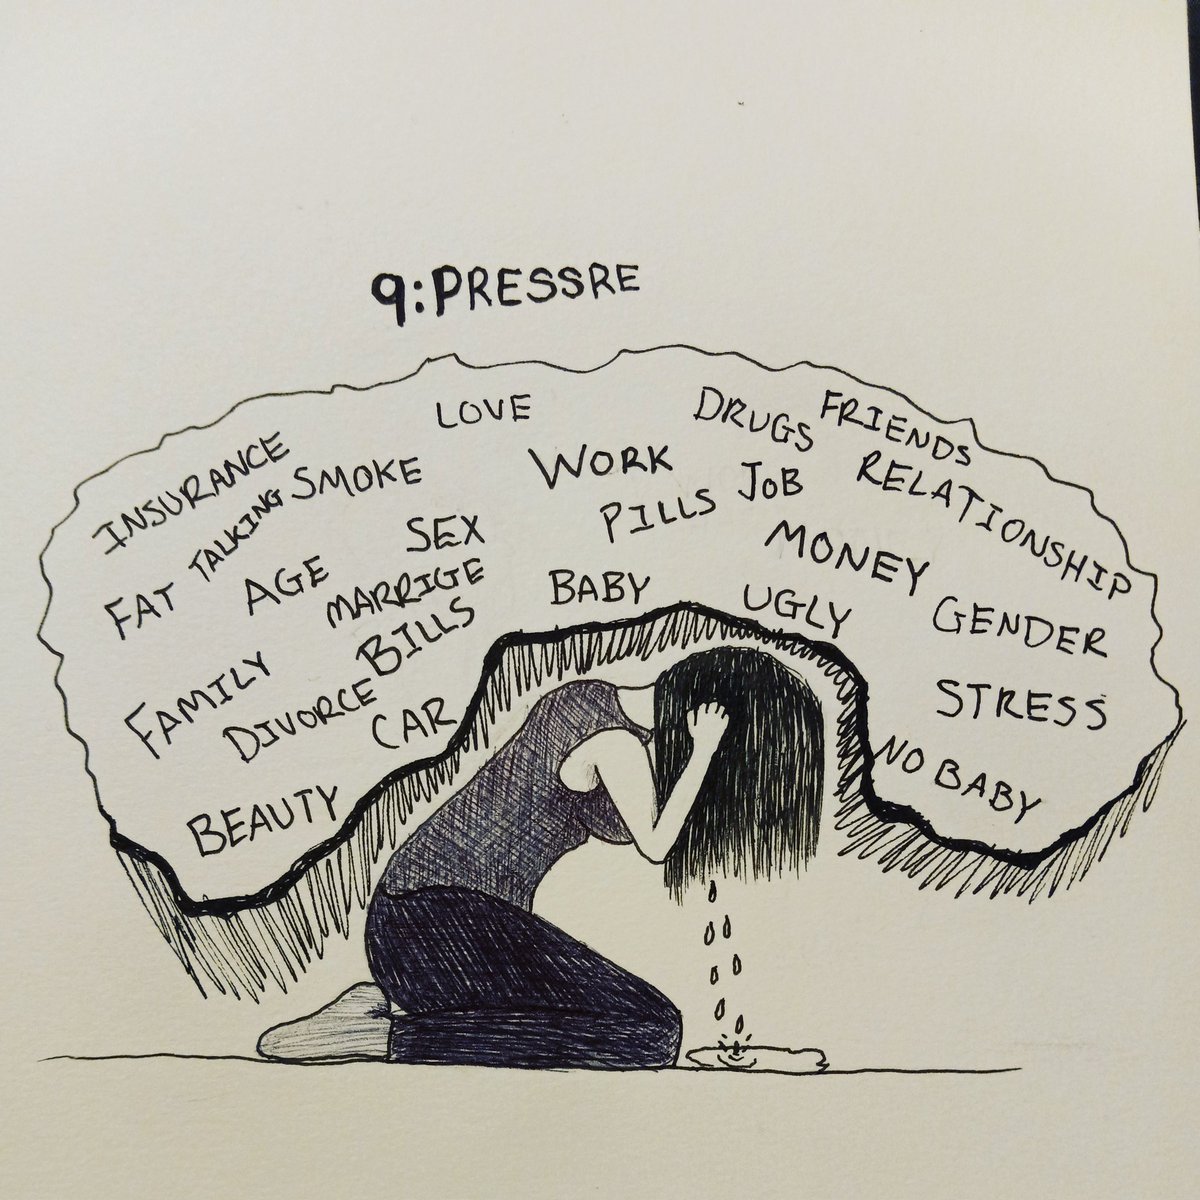 9:PRESSRE
LOVE
DRUGS
FRIENDS
INSURANCE
TALKING
SMOKE
WORK
JOB
RELATIONSHIP
PILLS
SEX
MONEY
FAT
AGE
MARRIGE
BABY
UGLY
GENDER
BILLS
FAMILY
DIVORCE
CAR
STRESS
NO BABY
BEAUTY